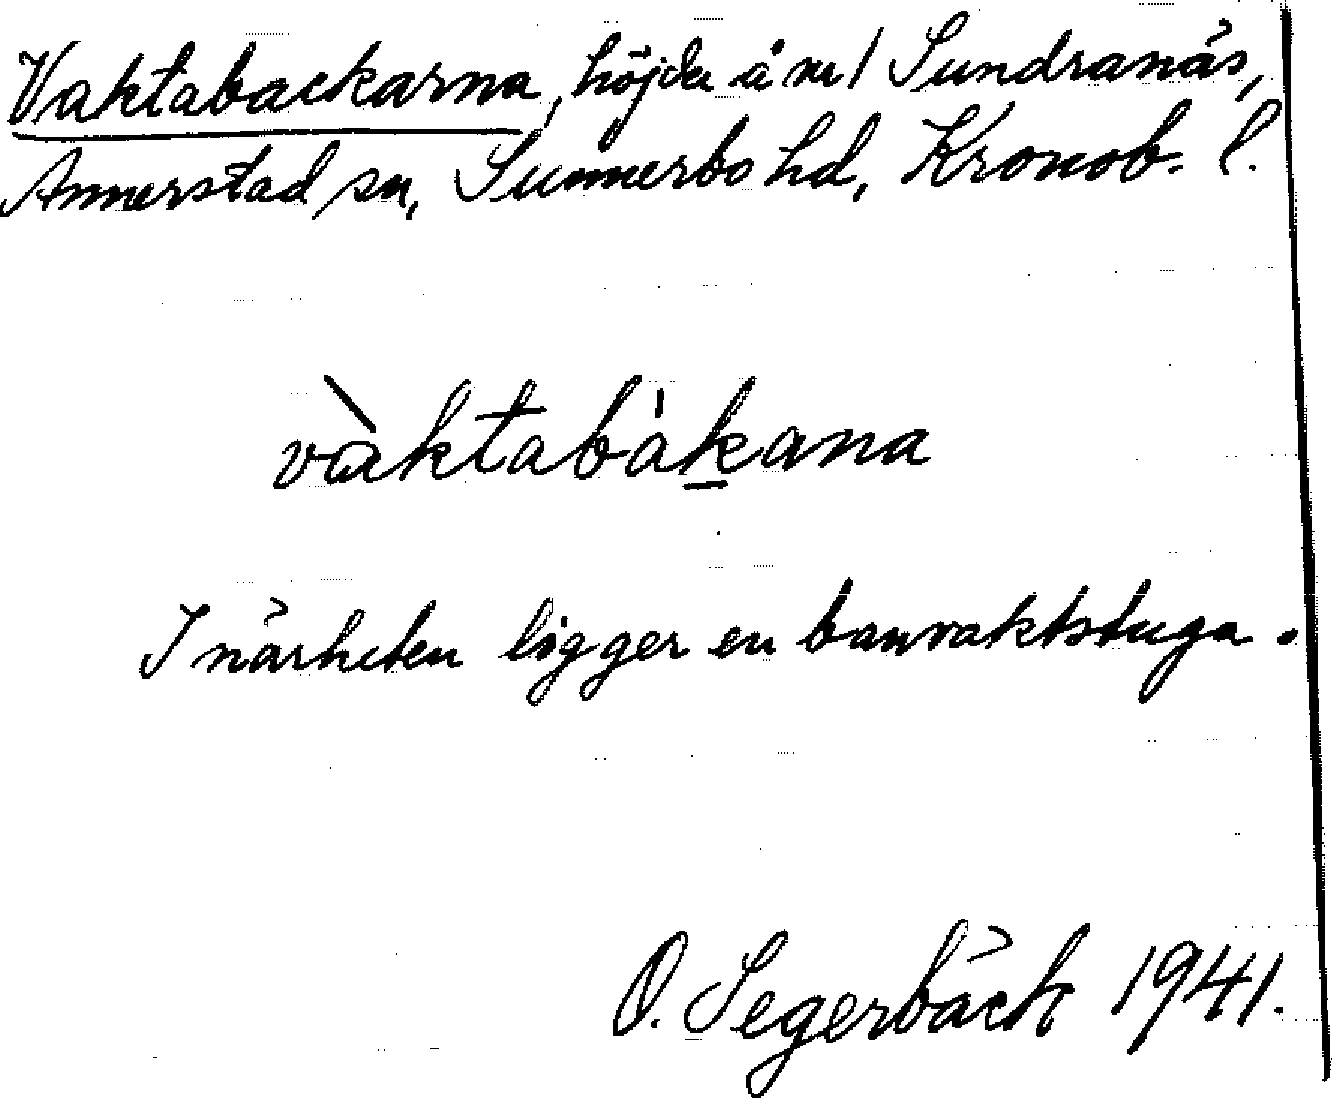 Vaktabackarna, höjder å m/ Sundranäs,
Annerstad sn, Sunnerbo hd, Kronob. l.
vàktabákana
I närheten ligger en banvaktstuga.
O. Segerbäck 1941.